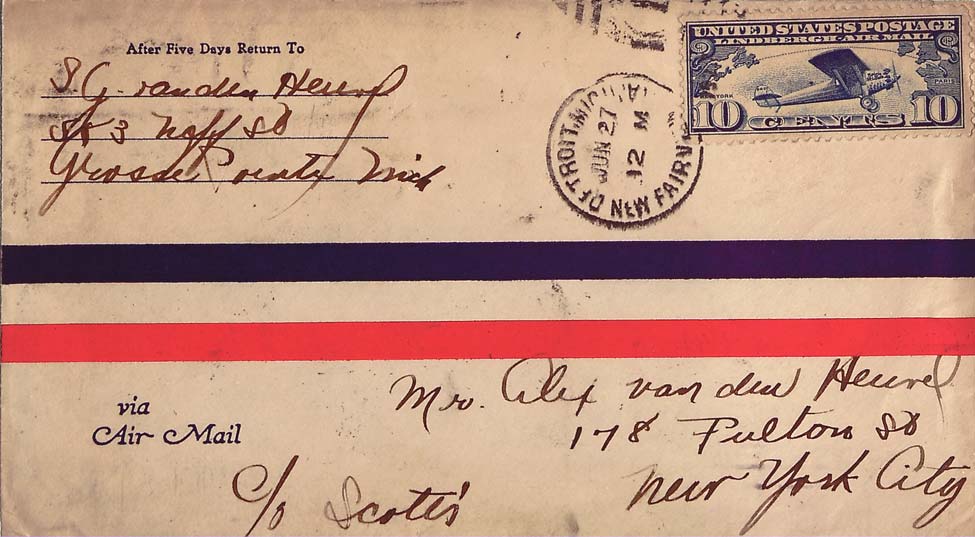 After Five Days Return To
S. G. van den Heuvel
Neff St
Grosse Pointe Mich
DETROIT, MICHIGAN
JUN 27
12 M
NEW FAIRV
UNITED STATES POSTAGE
LINDBERGH AIR MAIL
PARIS
10 CENTS 10
via
Air Mail
Mr. Alex van den Heuvel
178 Fulton St
New York City
c/o Scott's